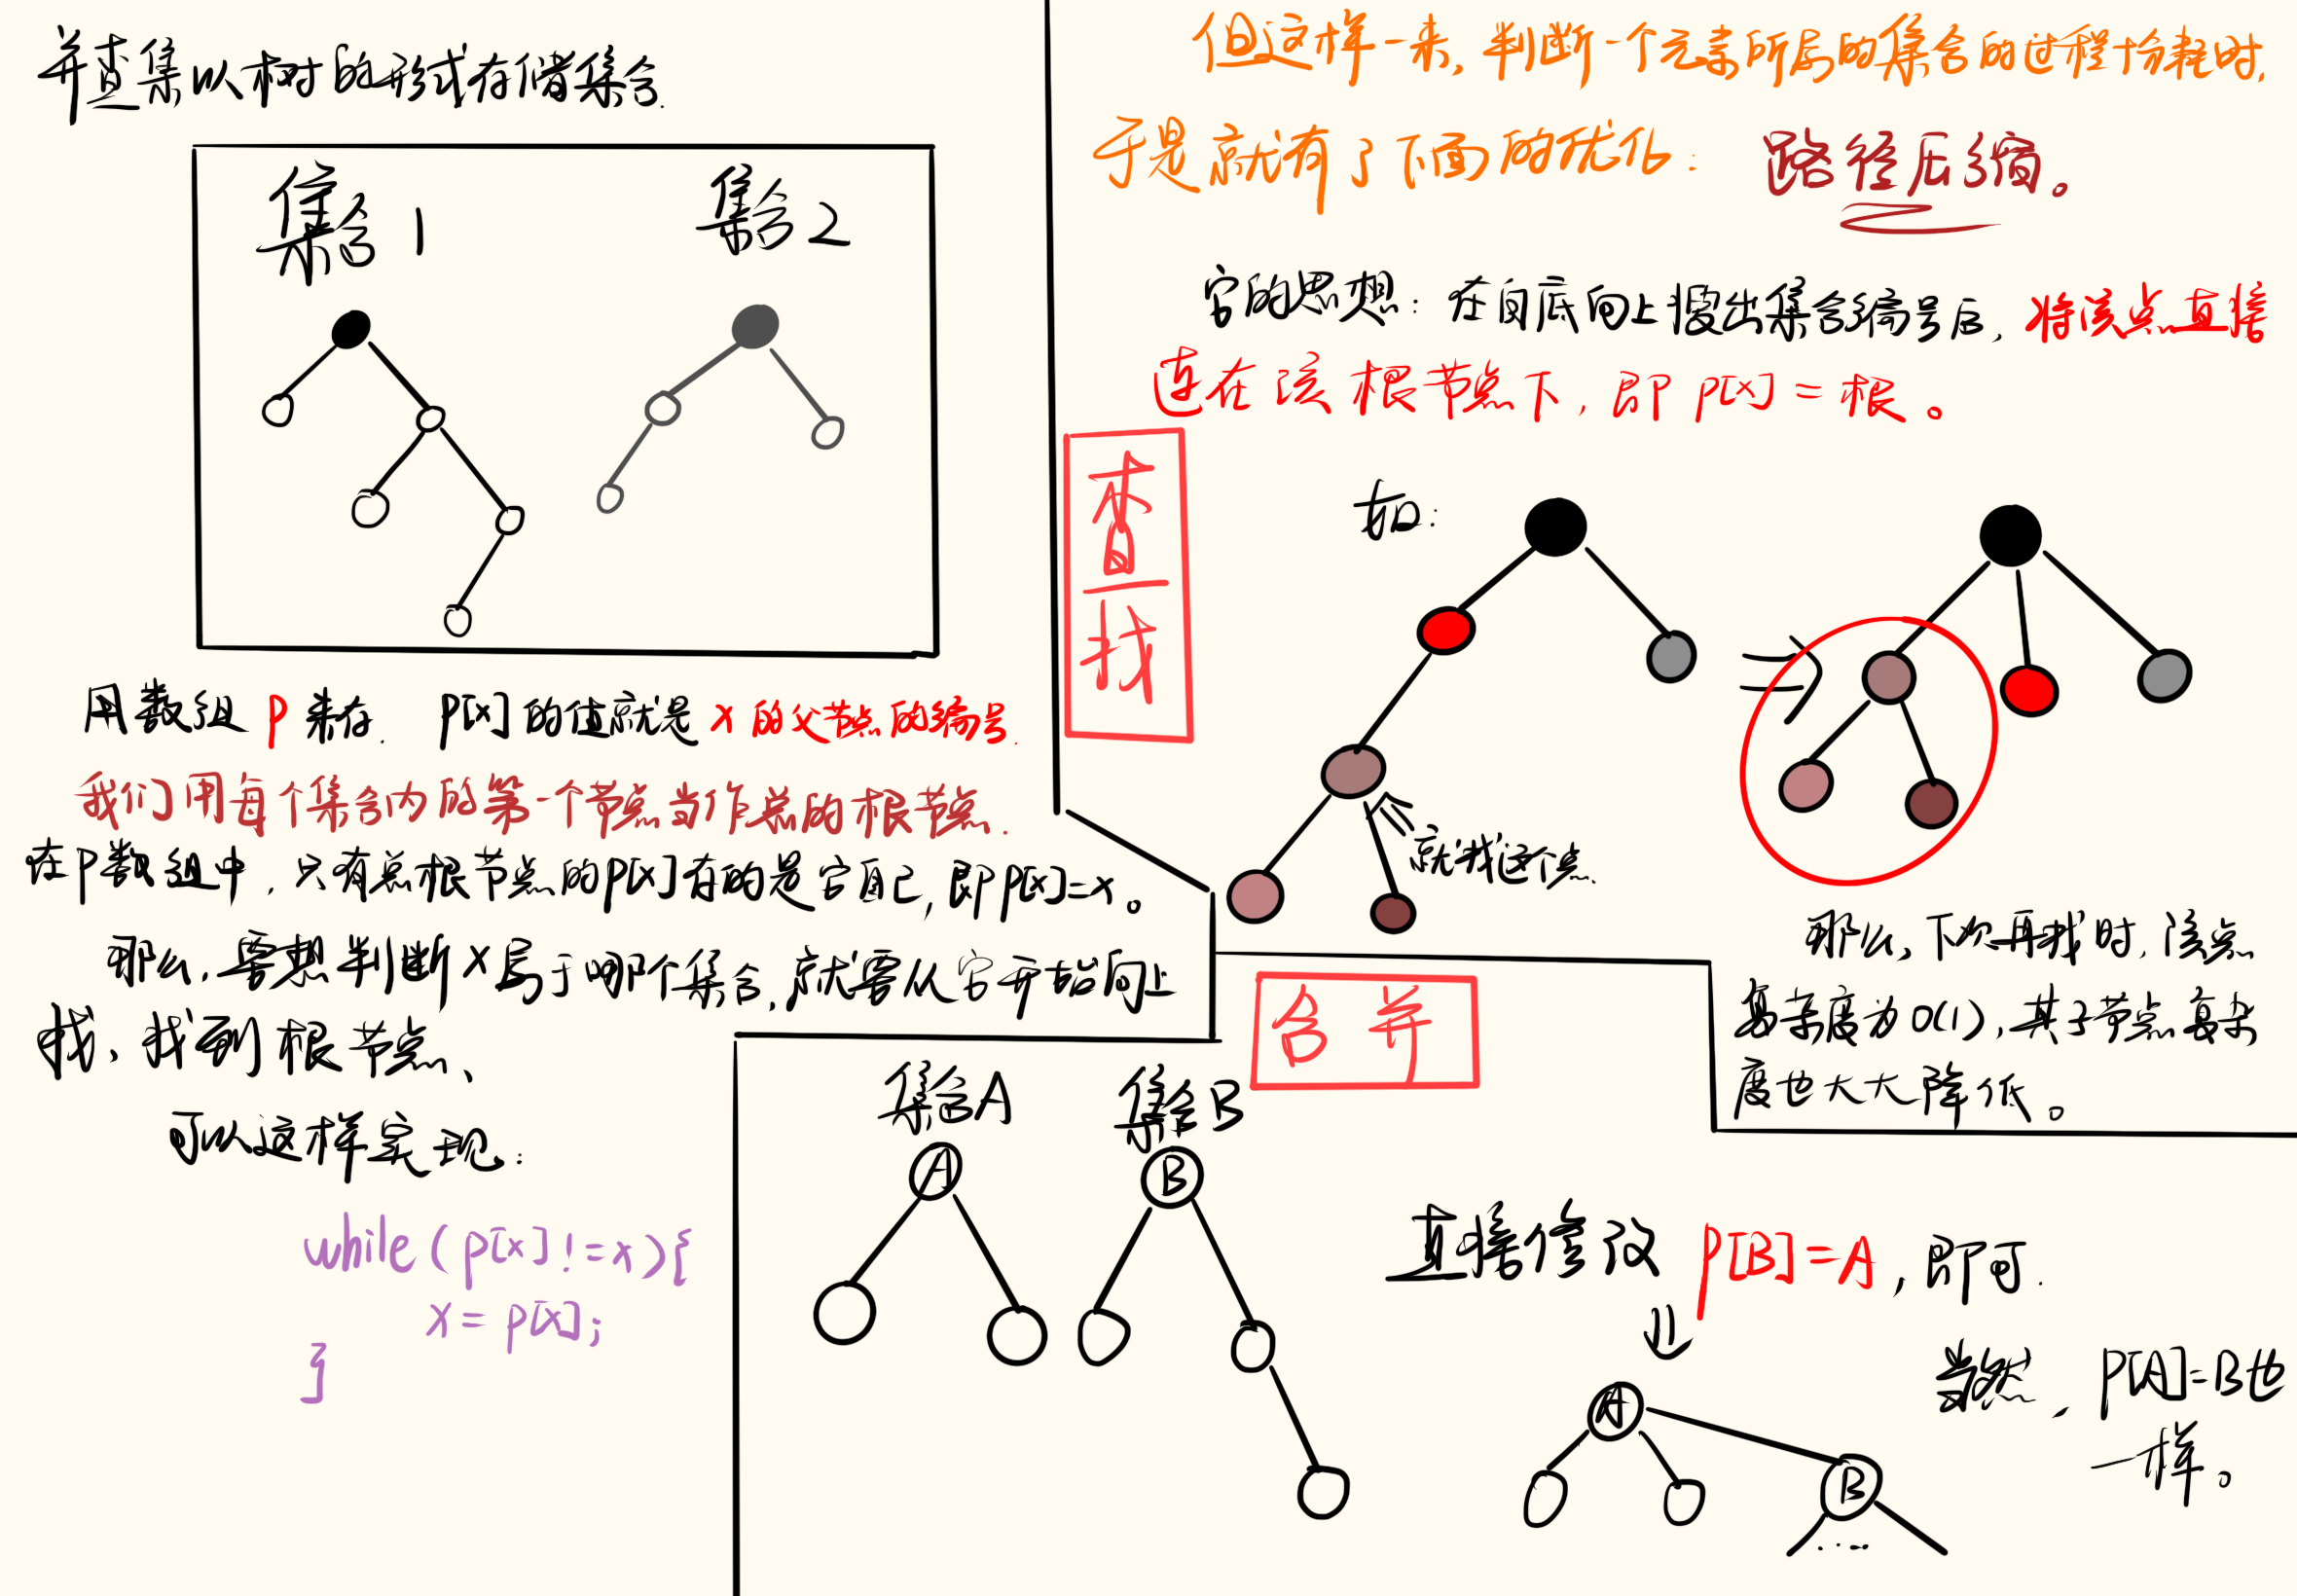 并查集以树的形式存储集合.
集合1
集合2
用数组 P 来存. P[x] 的值就是 x 的父节点的编号.
我们用每个集合内的第一个节点当作总的根节点.
在P数组中,只有总根节点的P[x]存的是它自己,即P[x]=x。
那么,要想判断X属于哪个集合,就要从它开始向上
找,找到根节点、
可以这样实现:
while(p[x]!=x){
x=p[x];
}
但这样一来,判断一个元素所属的集合的过程十分耗时,
于是就有了下面的优化: 路径压缩。
它的思想:在自底向上搜出集合编号后,将该点直接
连在该根节点下,即 P[x]=根。
查找
如:
就找这个点.
那么,下次再找时,该点
复杂度为O(1),其子节点复杂
度也大大降低。
合并
集合A
集合B
A
B
直接修改 P[B]=A,即可.
当然,P[A]=B也
一样。
A
B
....